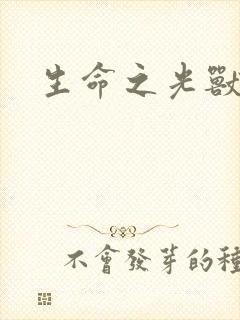 生命之光獸
不會發芽的種